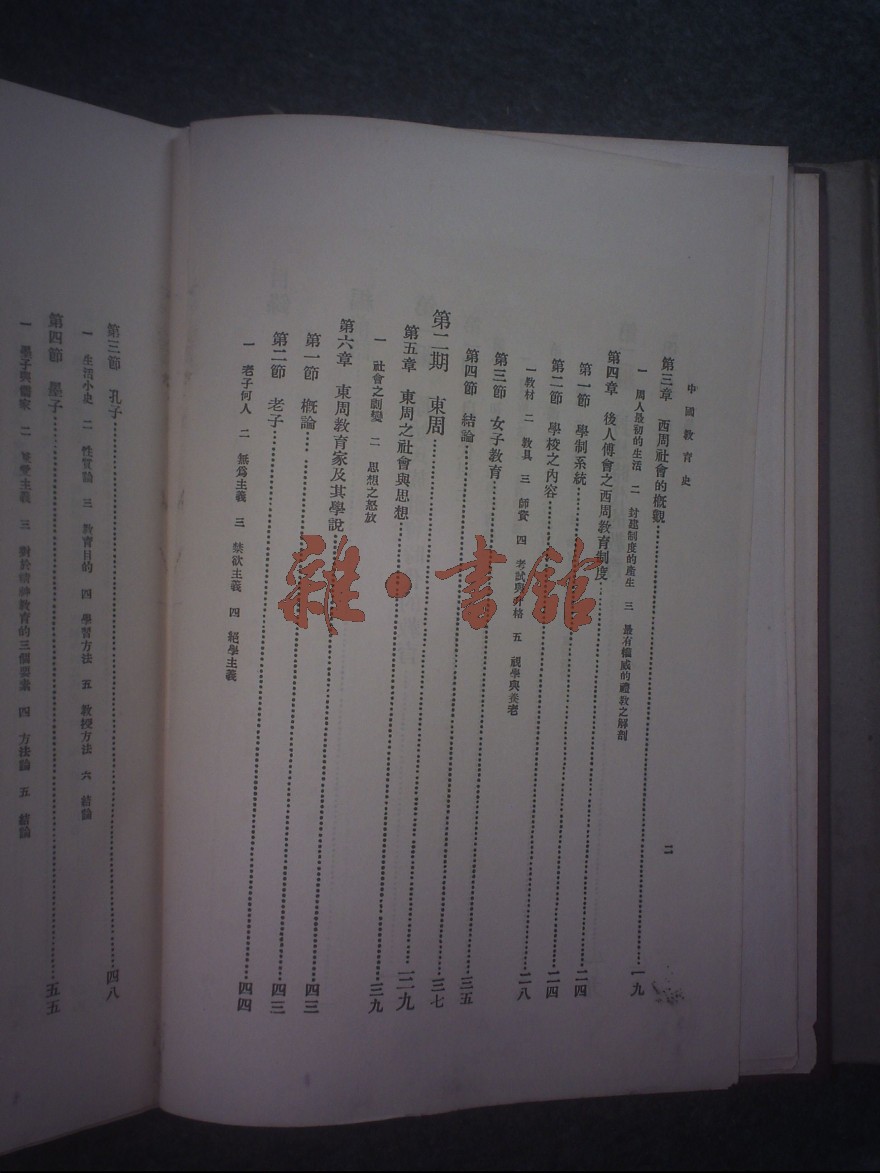 中國教育史
二
第三章 西周社會的概觀……一九
一 周人最初的生活 二 封建制度的產生 三 最有權威的禮教之解剖
第四章 後人傅會之西周教育制度……二四
第一節 學制系統……二四
第二節 學校之內容……二八
一教材 二 教具 三 師資 四 考試與升格 五 視學與養老
第三節 女子教育……三五
第四節 結論……三七
第二期 東周……三九
第五章 東周之社會與思想……三九
一 社會之劇變 二 思想之怒放
第六章 東周教育家及其學說……四三
第一節 概論……四三
第二節 老子……四四
一 老子何人 二 無為主義 三 禁欲主義 四 絕學主義
第三節 孔子……四八
一 生活小史 二 性質論 三 教育目的 四 學習方法 五 教授方法 六 結論
第四節 墨子……五五
一 墨子與儒家 二 兼愛主義 三 對於精神教育的三個要素 四 方法論 五 結論
雜·書館